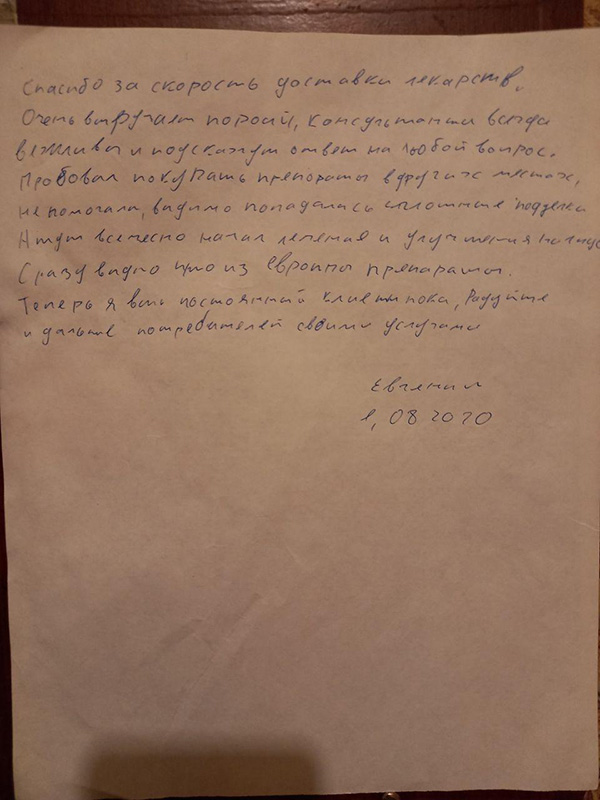 Спасибо за скорость доставки лекарств.
Очень выручает порой, консультанты всегда
вежливы и подскажут ответ на любой вопрос.
Пробовал покупать препараты в других местах,
не помогали, видимо попадались сплошные подделки
А тут всё честно начал лечение и улучшения
Сразу видно что из Европы препараты.
Теперь я ваш постоянный клиент пока, Радуйте
и дальше потребителей своими услугами
Евгений
1,08 2020